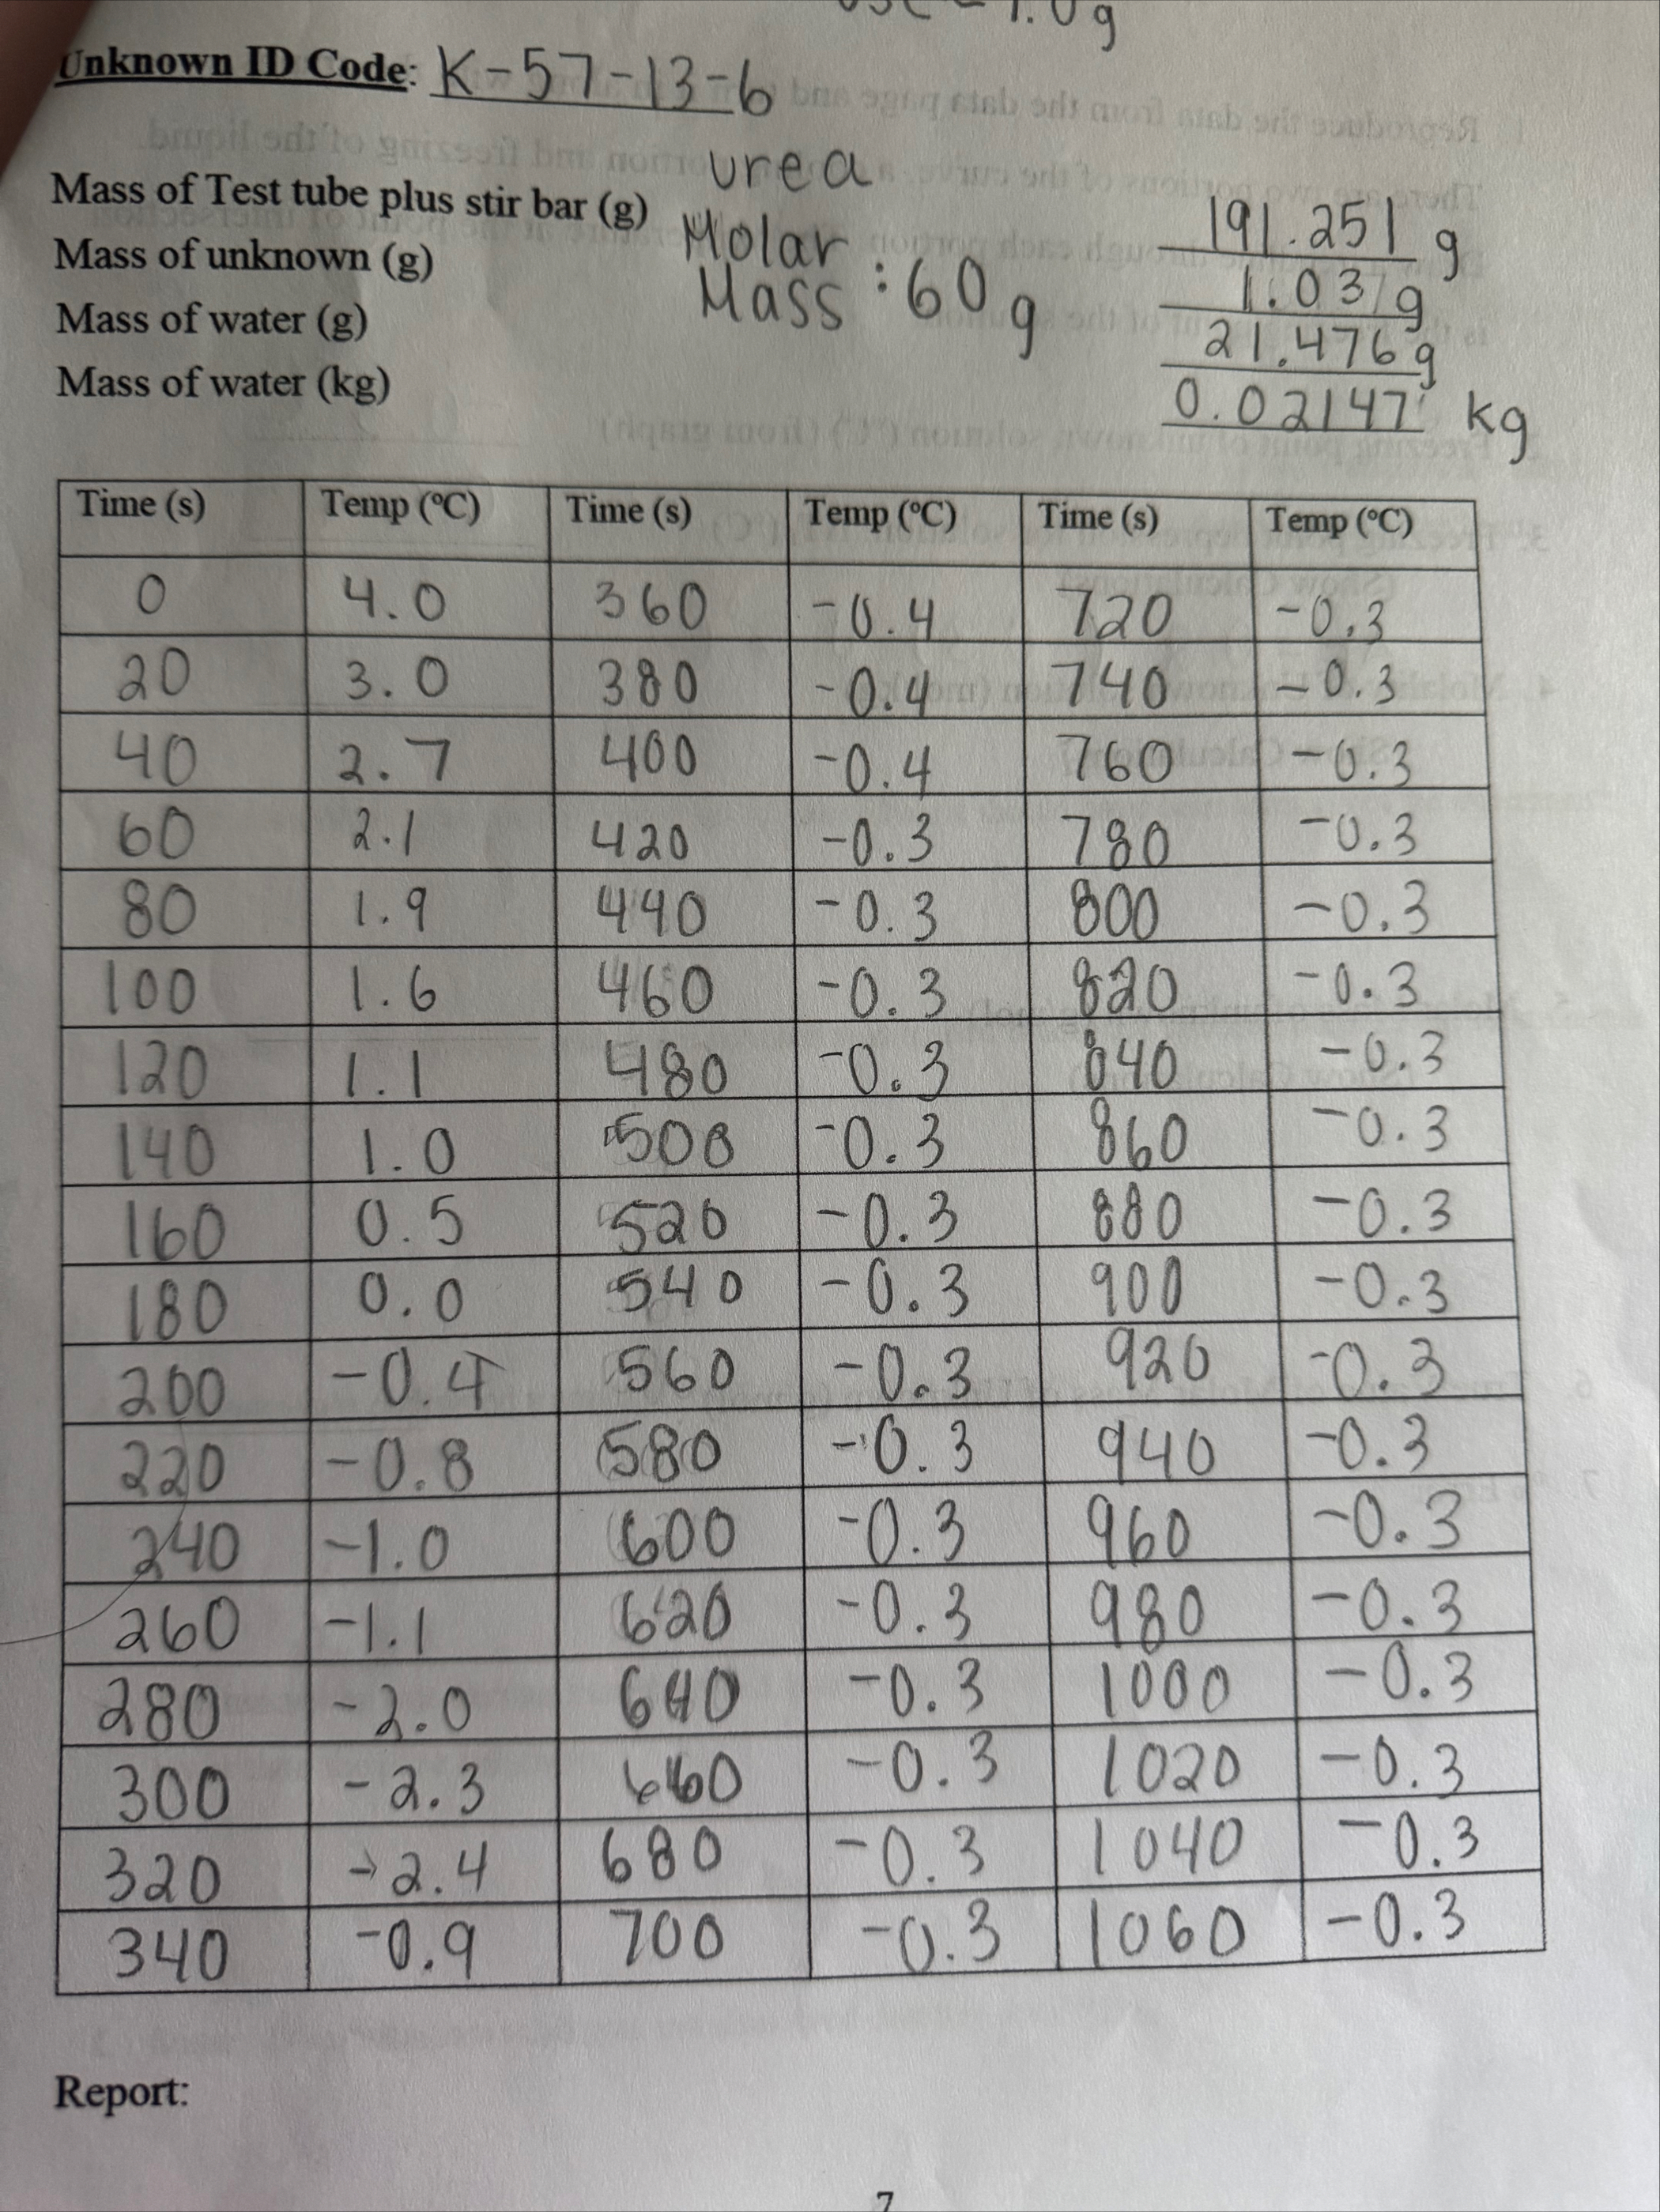 1.0g
Unknown ID Code: K-57-13-6
urea
Mass of Test tube plus stir bar (g) 191.251 g
Molar Mass : 60g
Mass of unknown (g) 1.031g
Mass of water (g) 21.476g
Mass of water (kg) 0.02147 kg
Time (s) Temp (ºC) Time (s) Temp (ºC) Time (s) Temp (ºC)
0 4.0 360 -0.4 720 -0.3
20 3.0 380 -0.4 740 -0.3
40 2.7 400 -0.4 760 -0.3
60 2.1 420 -0.3 780 -0.3
80 1.9 440 -0.3 800 -0.3
100 1.6 460 -0.3 820 -0.3
120 1.1 480 -0.3 840 -0.3
140 1.0 500 -0.3 860 -0.3
160 0.5 520 -0.3 880 -0.3
180 0.0 540 -0.3 900 -0.3
200 -0.4 560 -0.3 920 -0.3
220 -0.8 580 -0.3 940 -0.3
240 -1.0 600 -0.3 960 -0.3
260 -1.1 620 -0.3 980 -0.3
280 -2.0 640 -0.3 1000 -0.3
300 -2.3 660 -0.3 1020 -0.3
320 -2.4 680 -0.3 1040 -0.3
340 -0.9 700 -0.3 1060 -0.3
Report:
7